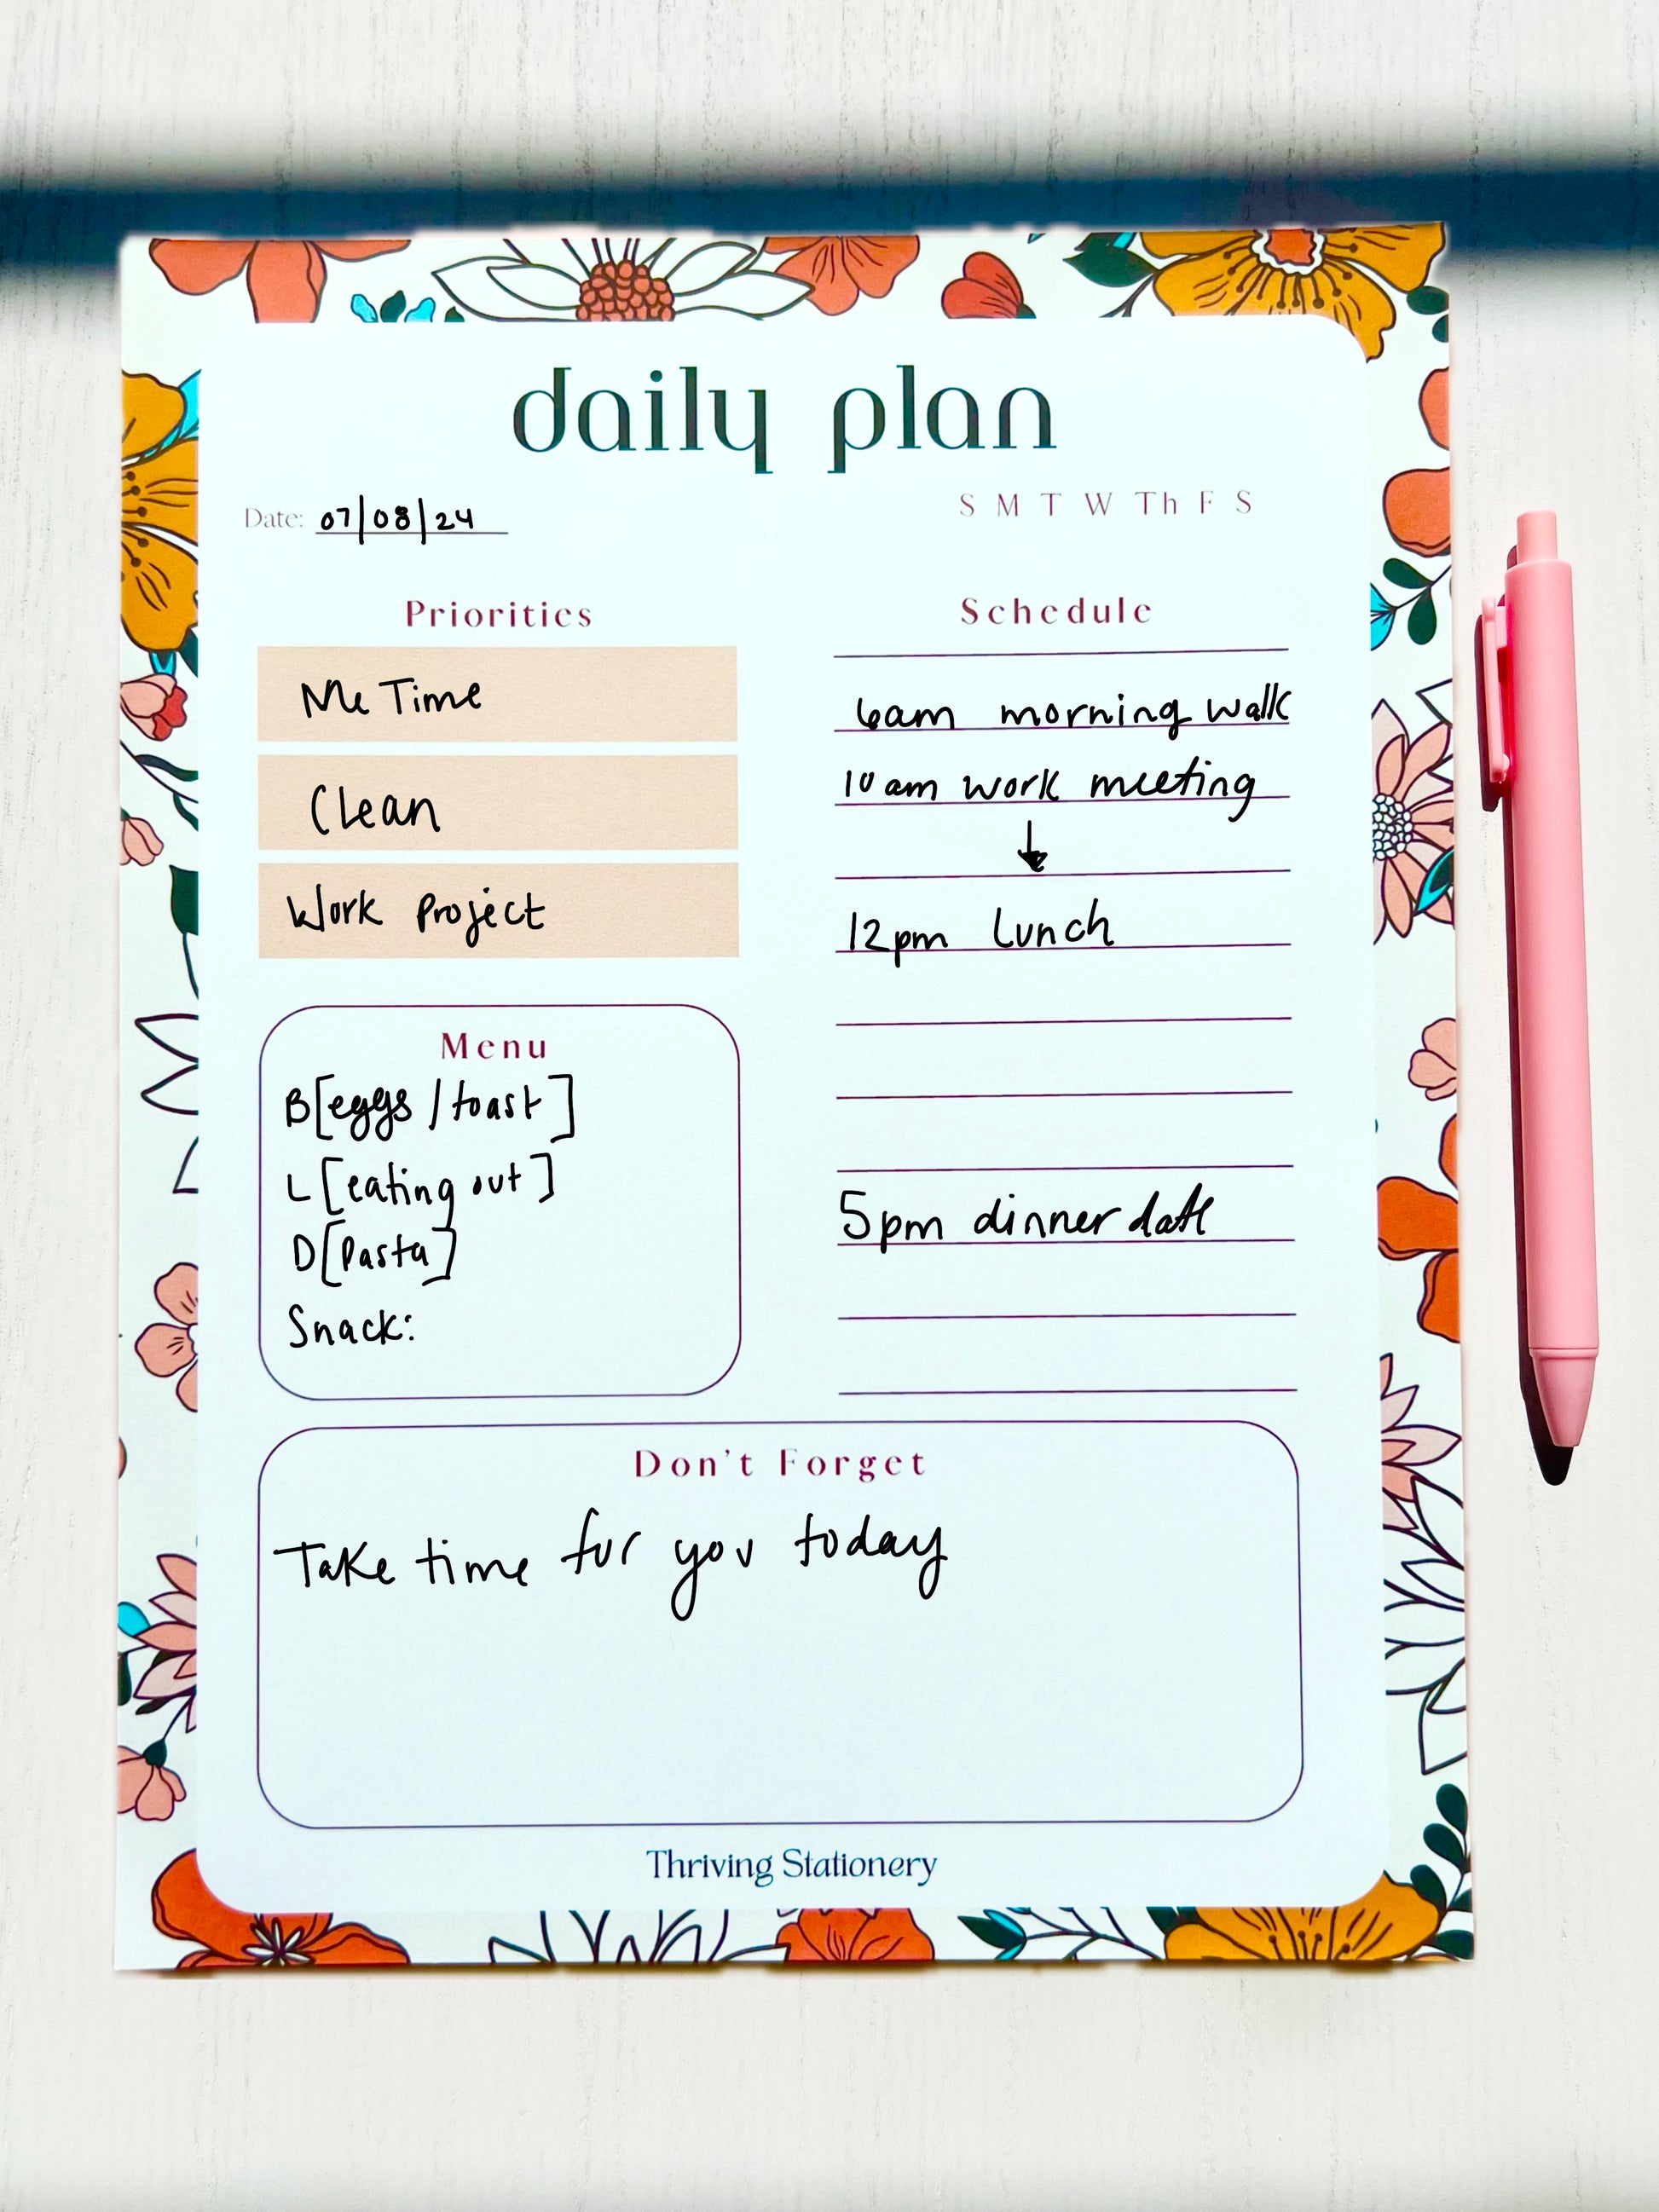 daily plan
Date: 07/08/24
S M T W Th F S
Priorities
Me Time
Clean
Work Project
Schedule
6am morning walk
10am work meeting
12pm Lunch
5pm dinner date
Menu
B[eggs / toast]
L[eating out]
D[Pasta]
Snack:
Don't Forget
Take time for you today
Thriving Stationery